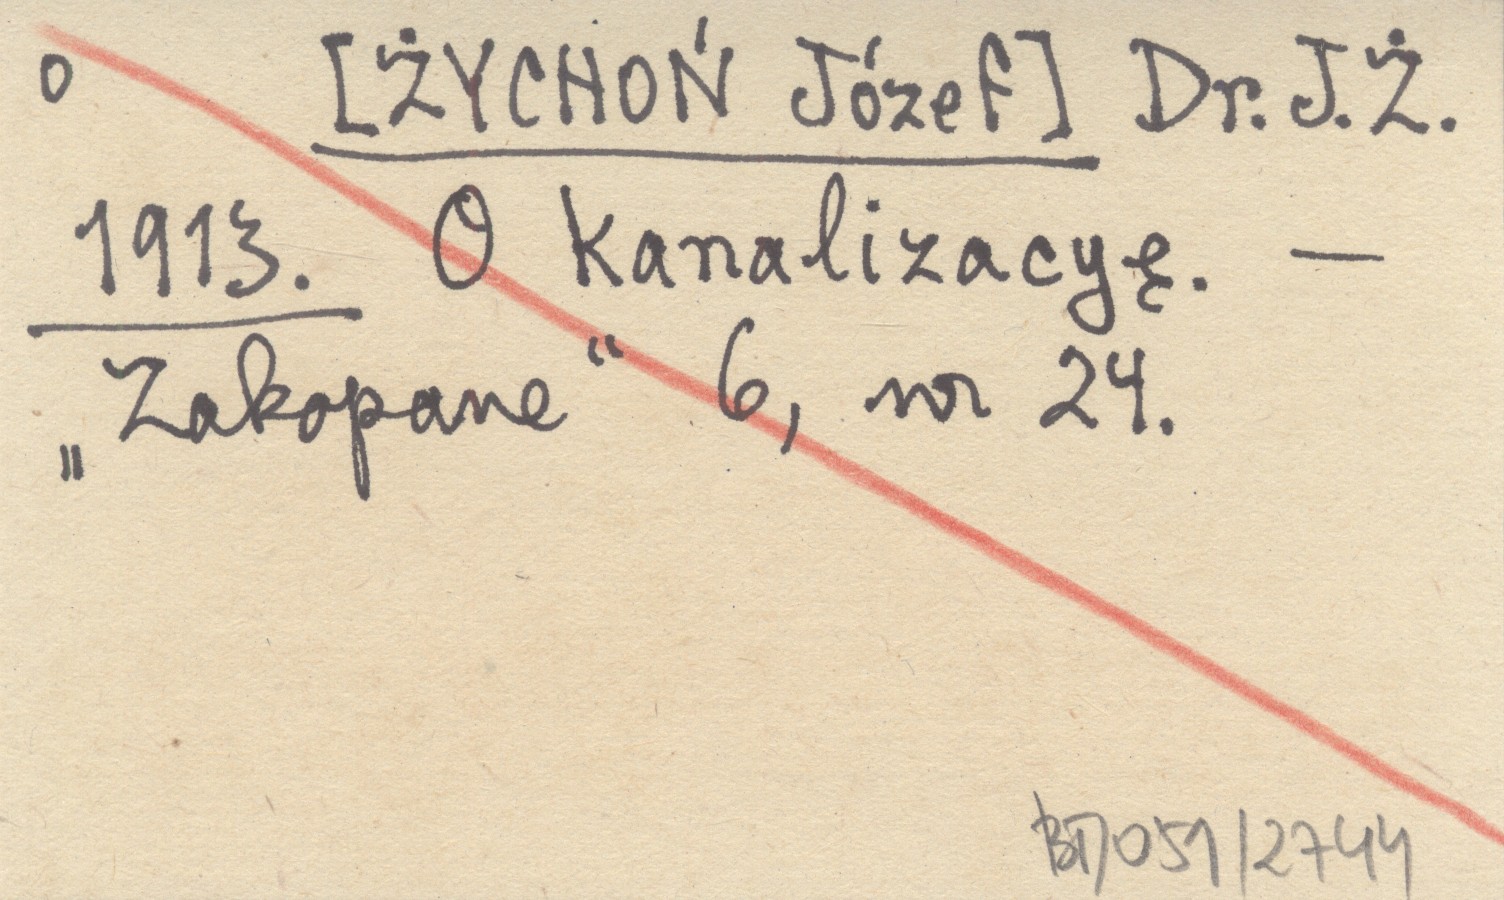 o [ŻYCHOŃ Józef] Dr. J. Ż.
1913. O kanalizacyę. —
„Zakopane“ 6, nr 24.
BT/059/2744